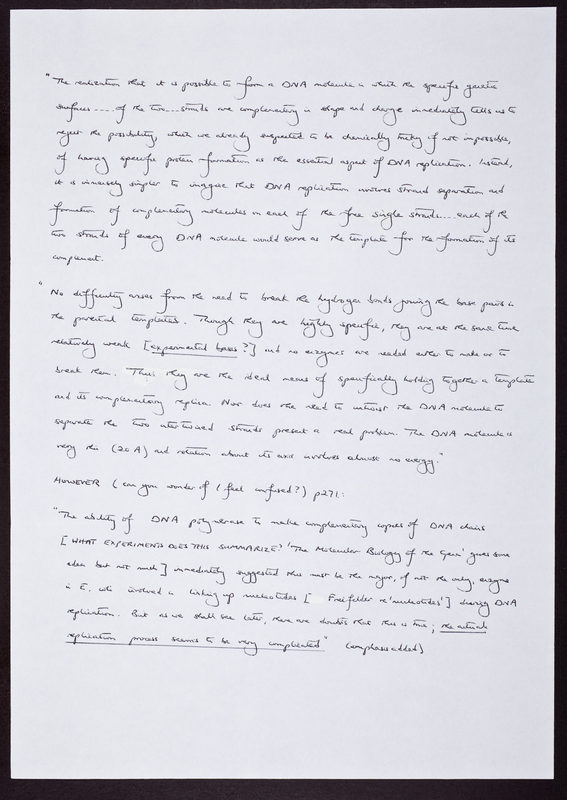 "The realization that it is possible to form a DNA molecule in which the specific genetic
surfaces .... of the two ... strands are complementary in shape and charge immediately tells us to
reject the possibility, which we already suspected to be chemically tricky if not impossible,
of having specific protein formation as the essential aspect of DNA replication. Instead,
it is immensely simpler to imagine that DNA replication involves strand separation and
formation of complementary molecules on each of the free single strands ... each of the
two strands of every DNA molecule would serve as the template for the formation of its
complement.
"No difficulty arises from the need to break the hydrogen bonds joining the base pairs in
the parental templates. Though they are highly specific, they are at the same time
relatively weak [experimental bases?] and no enzymes are needed either to make or to
break them. Thus they are the ideal means of specifically holding together a template
and its complementary replica. Nor does the need to untwist the DNA molecule to
separate the two intertwined strands present a real problem. The DNA molecule is
very thin (20 A) and rotation about its axis involves almost no energy."
HOWEVER (can you wonder if I feel confused?) p271:
"The ability of DNA polymerase to make complementary copies of DNA chains
[WHAT EXPERIMENTS DOES THIS SUMMARIZE? 'The Molecular Biology of the Gene' gives some
idea but not much] immediately suggested this must be the major, if not the only, enzyme
in E. coli involved in linking up nucleotides [ Freifelder re 'nucleotides'] during DNA
replication. But as we shall see later, there are doubts that this is true; the actual
replication process seems to be very complicated" (emphasis added)